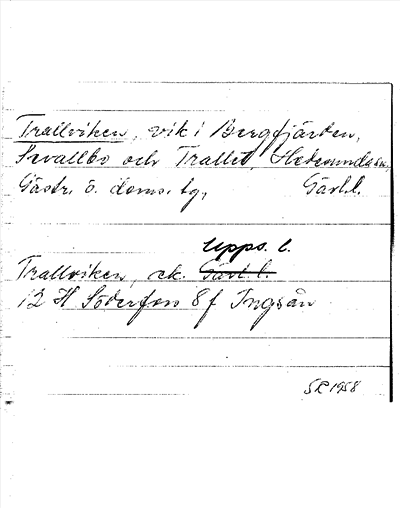 Trallviken, vik i Bergfjärden,
Svallbo och Trallet, Hedesunda sn,
Gästr. ö. doms. tg, Gävl.l.
Upps. l.
Trallviken, ek. Gävl. l.
12 H Söderfors 8 f Ingsån
SR 1958